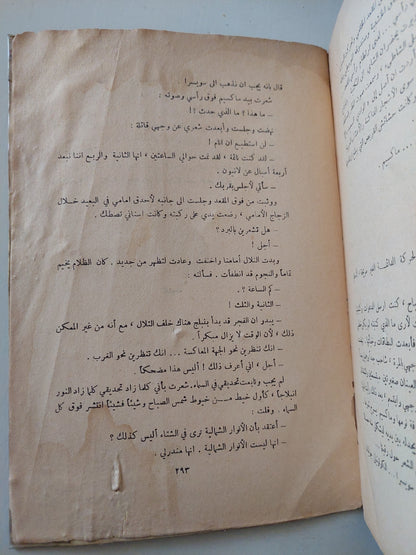 قال بانه يجب ان نذهب الى سويسرا .
شعرت بيد ماكسيم فوق رأسي وصوته :
– ما هذا ؟ ما الذي حدث ؟ !
نهضت وجلست وأبعدت شعري عن وجهي قائلة :
– لن استطيع ان انام !
– لقد كنت نائمة ، لقد نمت حوالي الساعتين ، انها الثانية والربع اننا نبعد
أربعة أميال عن لانيون .
– سآتي لأجلس بقربك .
ووثبت من فوق المقعد وجلست الى جانبه لأحدق امامي في البعيد خلال
الزجاج الأمامي ، وضعت يدي على ركبته وكانت اسناني تصطك .
– هل تشعرين بالبرد ؟
– أجل !
وبدت التلال أمامنا واختفت وعادت لتظهر من جديد . كان الظلام يخيم
تماماً والنجوم قد انطفأت . فسألته :
– كم الساعة ؟
– الثانية والثلث !
– يبدو ان الفجر قد بدأ ينبلج هناك خلف التلال ، مع أنه من غير الممكن
ذلك ، لأن الوقت لا يزال مبكراً .
– انك تنظرين نحو الجهة المعاكسة ... انك تنظرين نحو الغرب .
– أجل ، اني أعرف ذلك ! أليس هذا مضحكاً
لم يجب وتابعت تحديقي في السماء. شعرت بأني كلما زاد تحديقي كلما زاد النور
انبلاجاً ، كأول خيط من خيوط شمس الصباح وشيئاً فشيئاً انتشر فوق كل
السماء . وقلت :
– أعتقد بأن الأنوار الشمالية ترى في الشتاء أليس كذلك ؟
– انها ليست الأنوار الشمالية . انها مندرلي .
٢٩٣